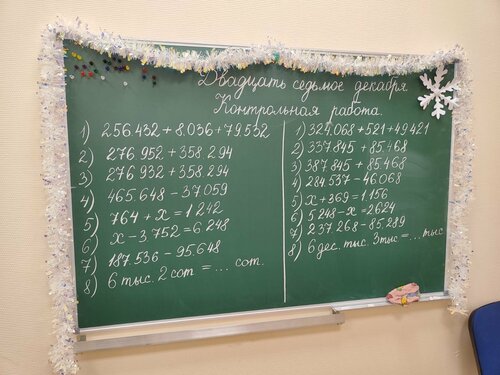 Двадцать седьмое декабря
Контрольная работа.
1) 256.432 + 8.036 + 79.532
2) 276 952 + 358.294
3) 276 932 + 358.294
4) 465.648 - 37.059
5) 764 + х = 1 242
6) х - 3 752 = 6 248
7) 187.536 - 95.648
8) 6 тыс. 2 сот = ... сот.
1) 324.068 + 521 + 49.421
2) 337.845 + 85.468
3) 387 845 + 85.468
4) 284.537 - 46.068
5) х + 369 = 1.156
6) 5.248 - х = 2624
7) 237 268 - 85.289
8) 6 дес. тыс. 3 тыс = ... тыс